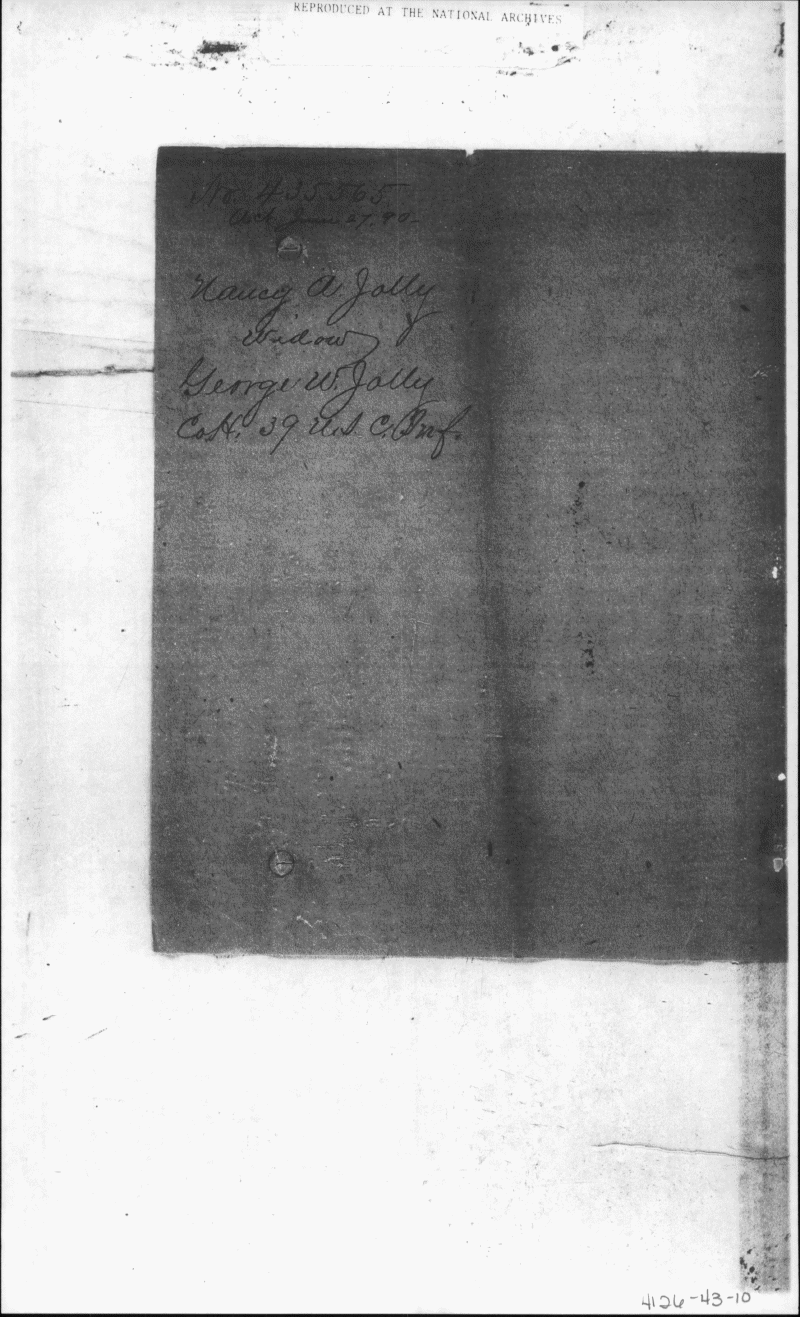 REPRODUCED AT THE NATIONAL ARCHIVES
No. 435565
Act June 27. 90-
Nancy A Jolly
Widow
George W. Jolly
Co H, 39 U.S. C. Inf.
4126-43-10